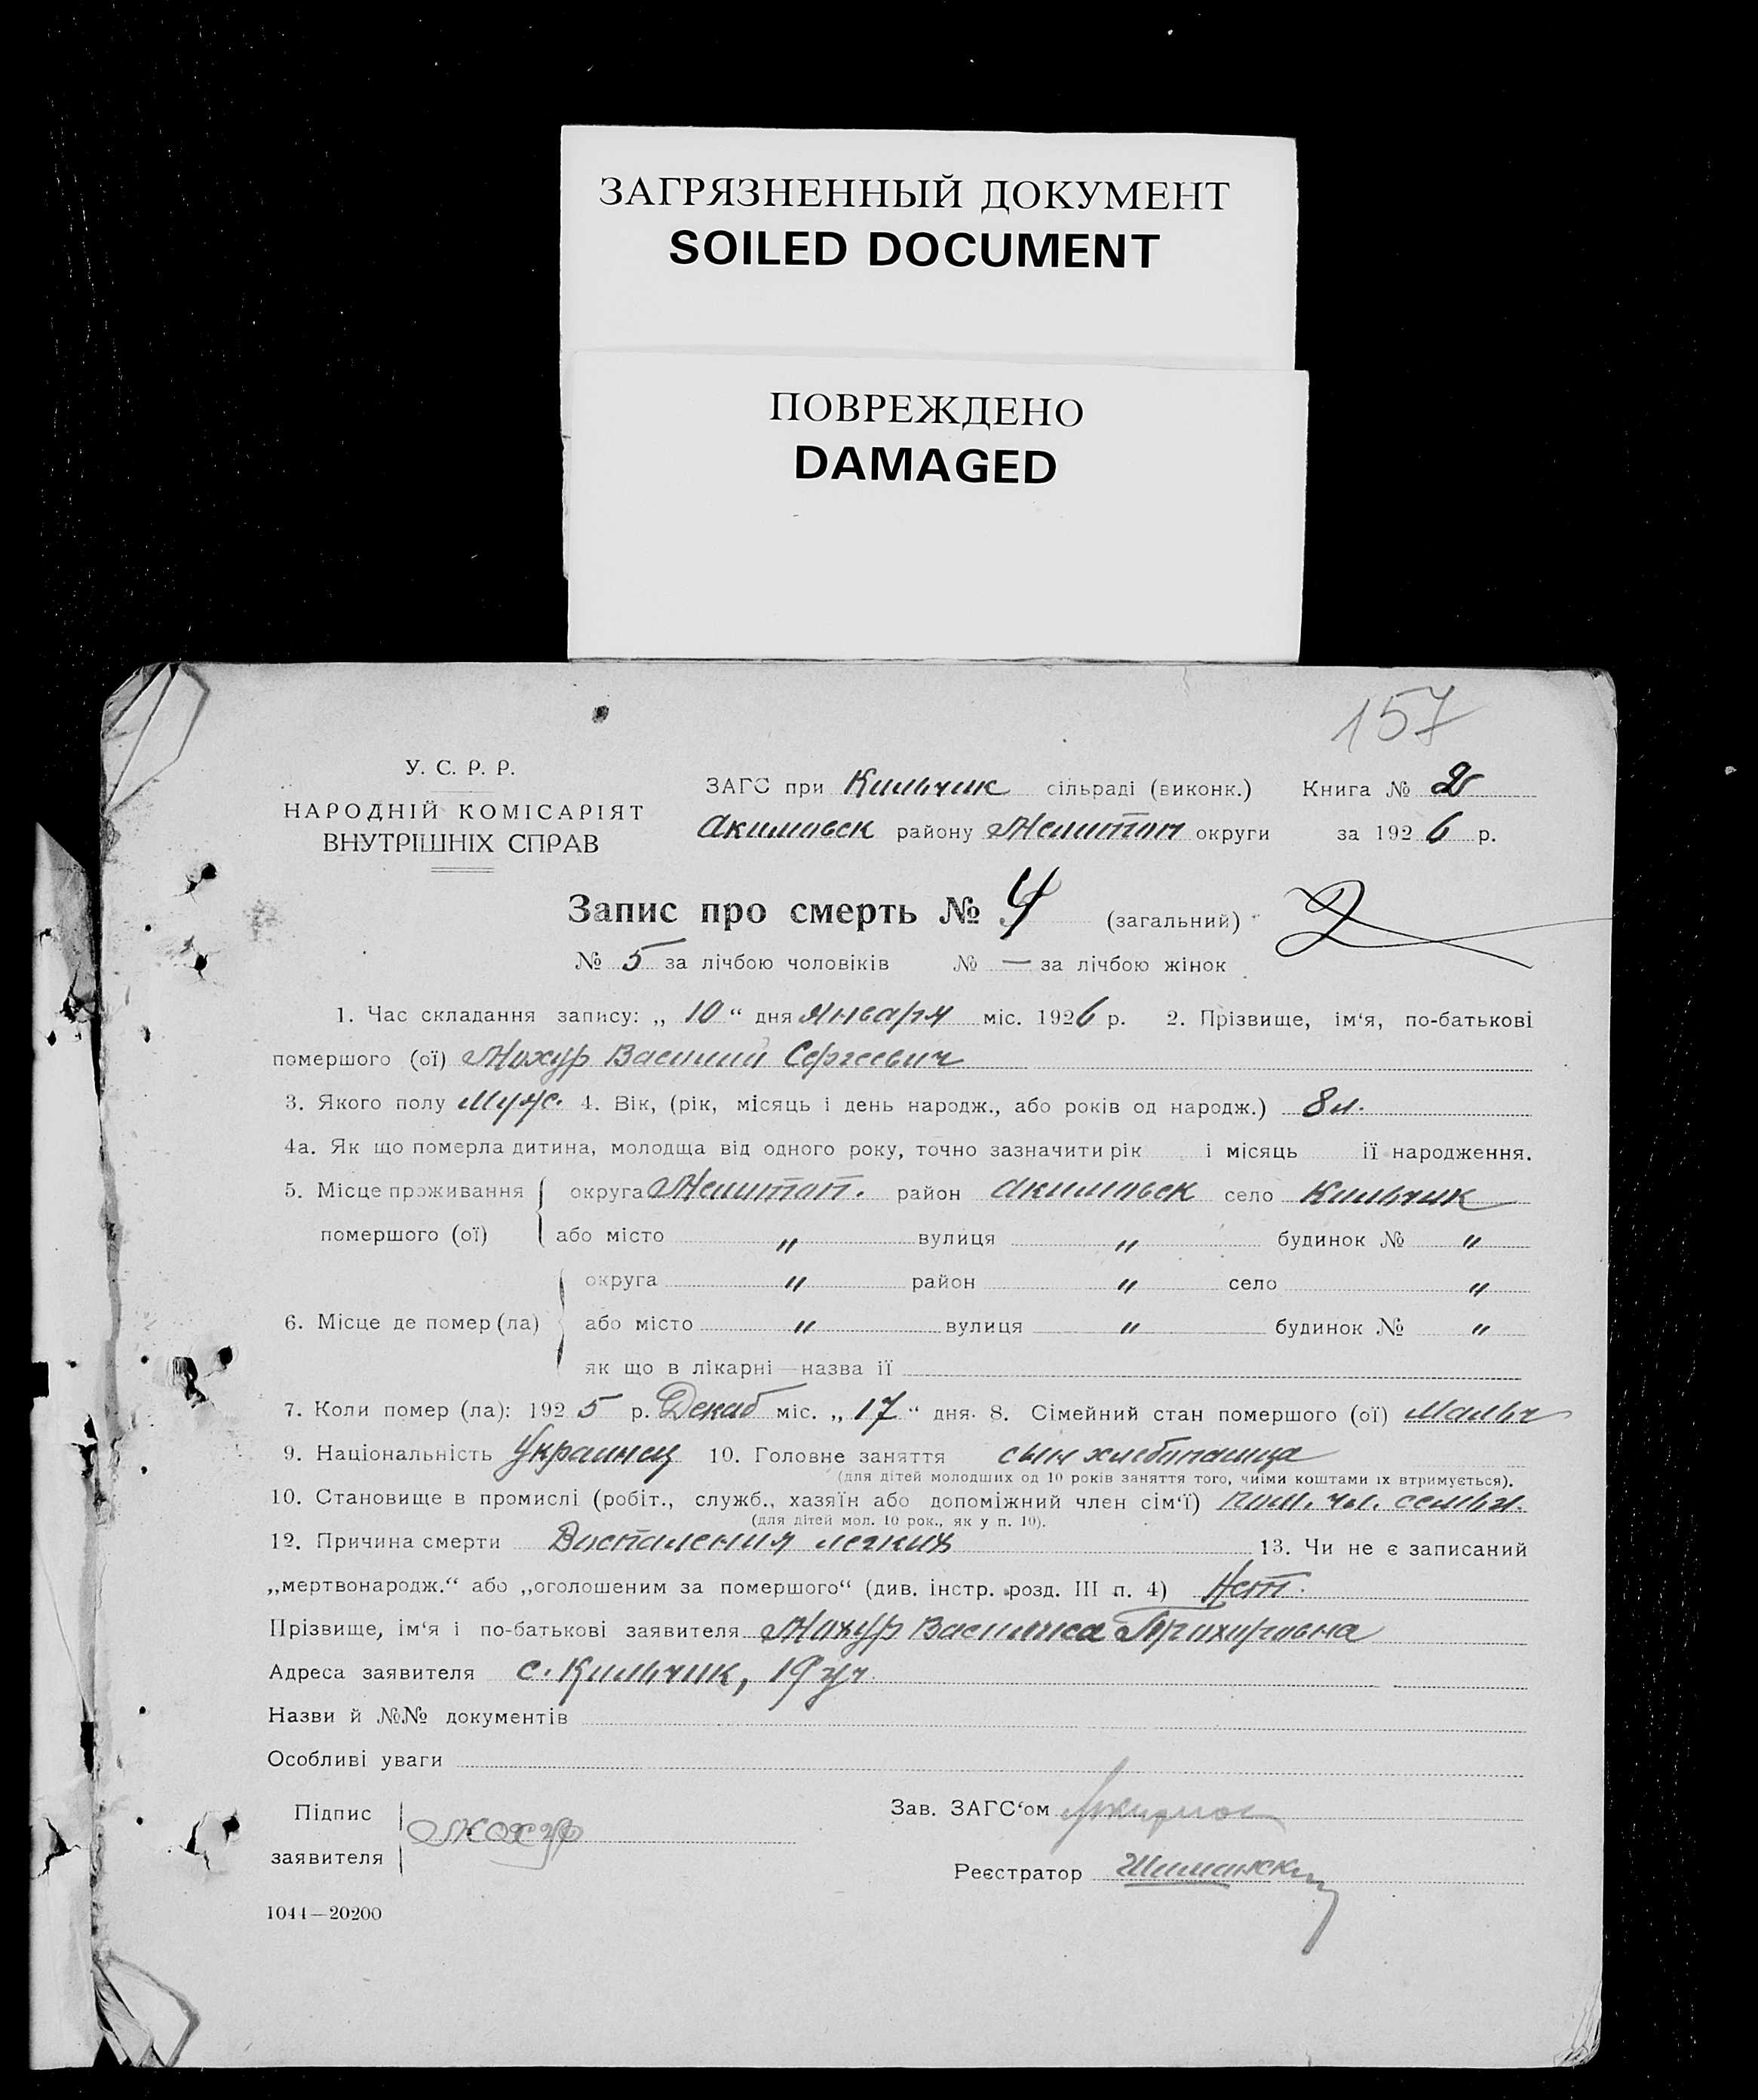 ЗАГРЯЗНЕННЫЙ ДОКУМЕНТ
SOILED DOCUMENT
ПОВРЕЖДЕНО
DAMAGED
157
У. С. Р. Р.
НАРОДНІЙ КОМІСАРІЯТ
ВНУТРІШНІХ СПРАВ
ЗАГС при Кильчик сільраді (виконк.) Книга № 2
Акимовск району Мелитоп округи за 1926 р.
Запис про смерть № 4 (загальний)
№ 5 за лічбою чоловіків № — за лічбою жінок
1. Час складання запису: „ 10 “ дня Января міс. 1926 р. 2. Прізвище, ім‘я, по-батькові
помершого (ої) Мохур Василий Сергеевич
3. Якого полу Муж. 4. Вік, (рік, місяць і день народж., або років од народж.) 8 л.
4а. Як що померла дитина, молодща від одного року, точно зазначити рік і місяць її народження.
5. Місце проживання округа Мелитоп. район Акимовск село Кильчик
помершого (ої) або місто " вулиця " будинок № "
округа " район " село "
6. Місце де помер (ла) або місто " вулиця " будинок № "
як що в лікарні—назва її
7. Коли помер (ла): 1925 р. Декаб міс. „ 17 “ дня. 8. Сімейний стан помершого (ої) Мальч
9. Національність Украинец 10. Головне заняття сын хлебопашца
(для дітей молодших од 10 років заняття того, чиїми коштами їх втримується).
10. Становище в промислі (робіт., служб., хазяїн або допоміжний член сім‘ї) пом. чл. семьи.
(для дітей мол. 10 рок., як у п. 10).
12. Причина смерти Воспаления легких 13. Чи не є записаний
„мертвонародж.“ або „оголошеним за помершого“ (див. інстр. розд. III п. 4) Нет.
Прізвище, ім‘я і по-батькові заявителя Мохур Василиса
Адреса заявителя с. Кильчик, 19 уч.
Назви й №№ документів
Особливі уваги
Підпис
заявителя Мохур
Зав. ЗАГС‘ом
Реєстратор Шиманский
1044—20200